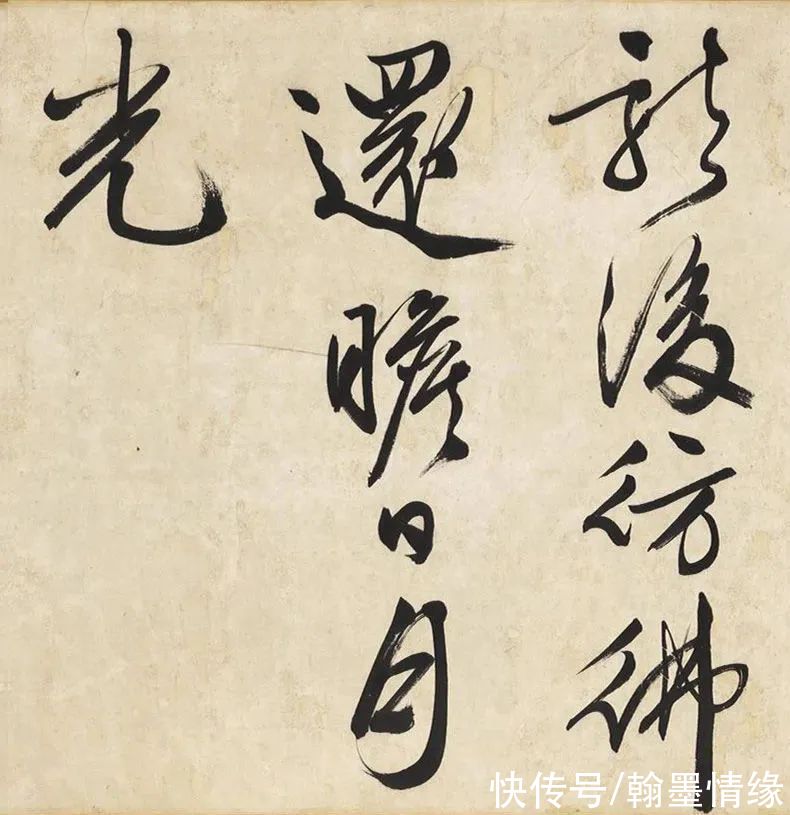 龍後彷彿
還瞻日月
光
快传号/翰墨情缘